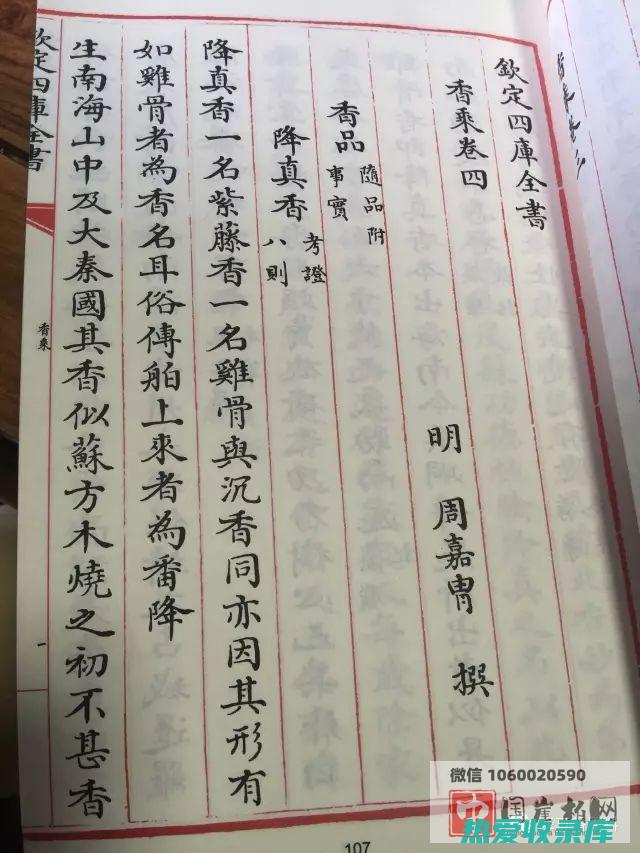 欽定四庫全書
香乘卷四
明 周嘉胄 撰
香品 隨品附
事實
降真香 考證
八則
降真香一名紫藤香一名雞骨與沉香同亦因其形有
如雞骨者為香名耳俗傳舶上來者為番降
生南海山中及大秦國其香似蘇方木燒之初不甚香
欽定四庫全書
香乘
一
107
微信 1060020590
国崖柏网
热爱收录库